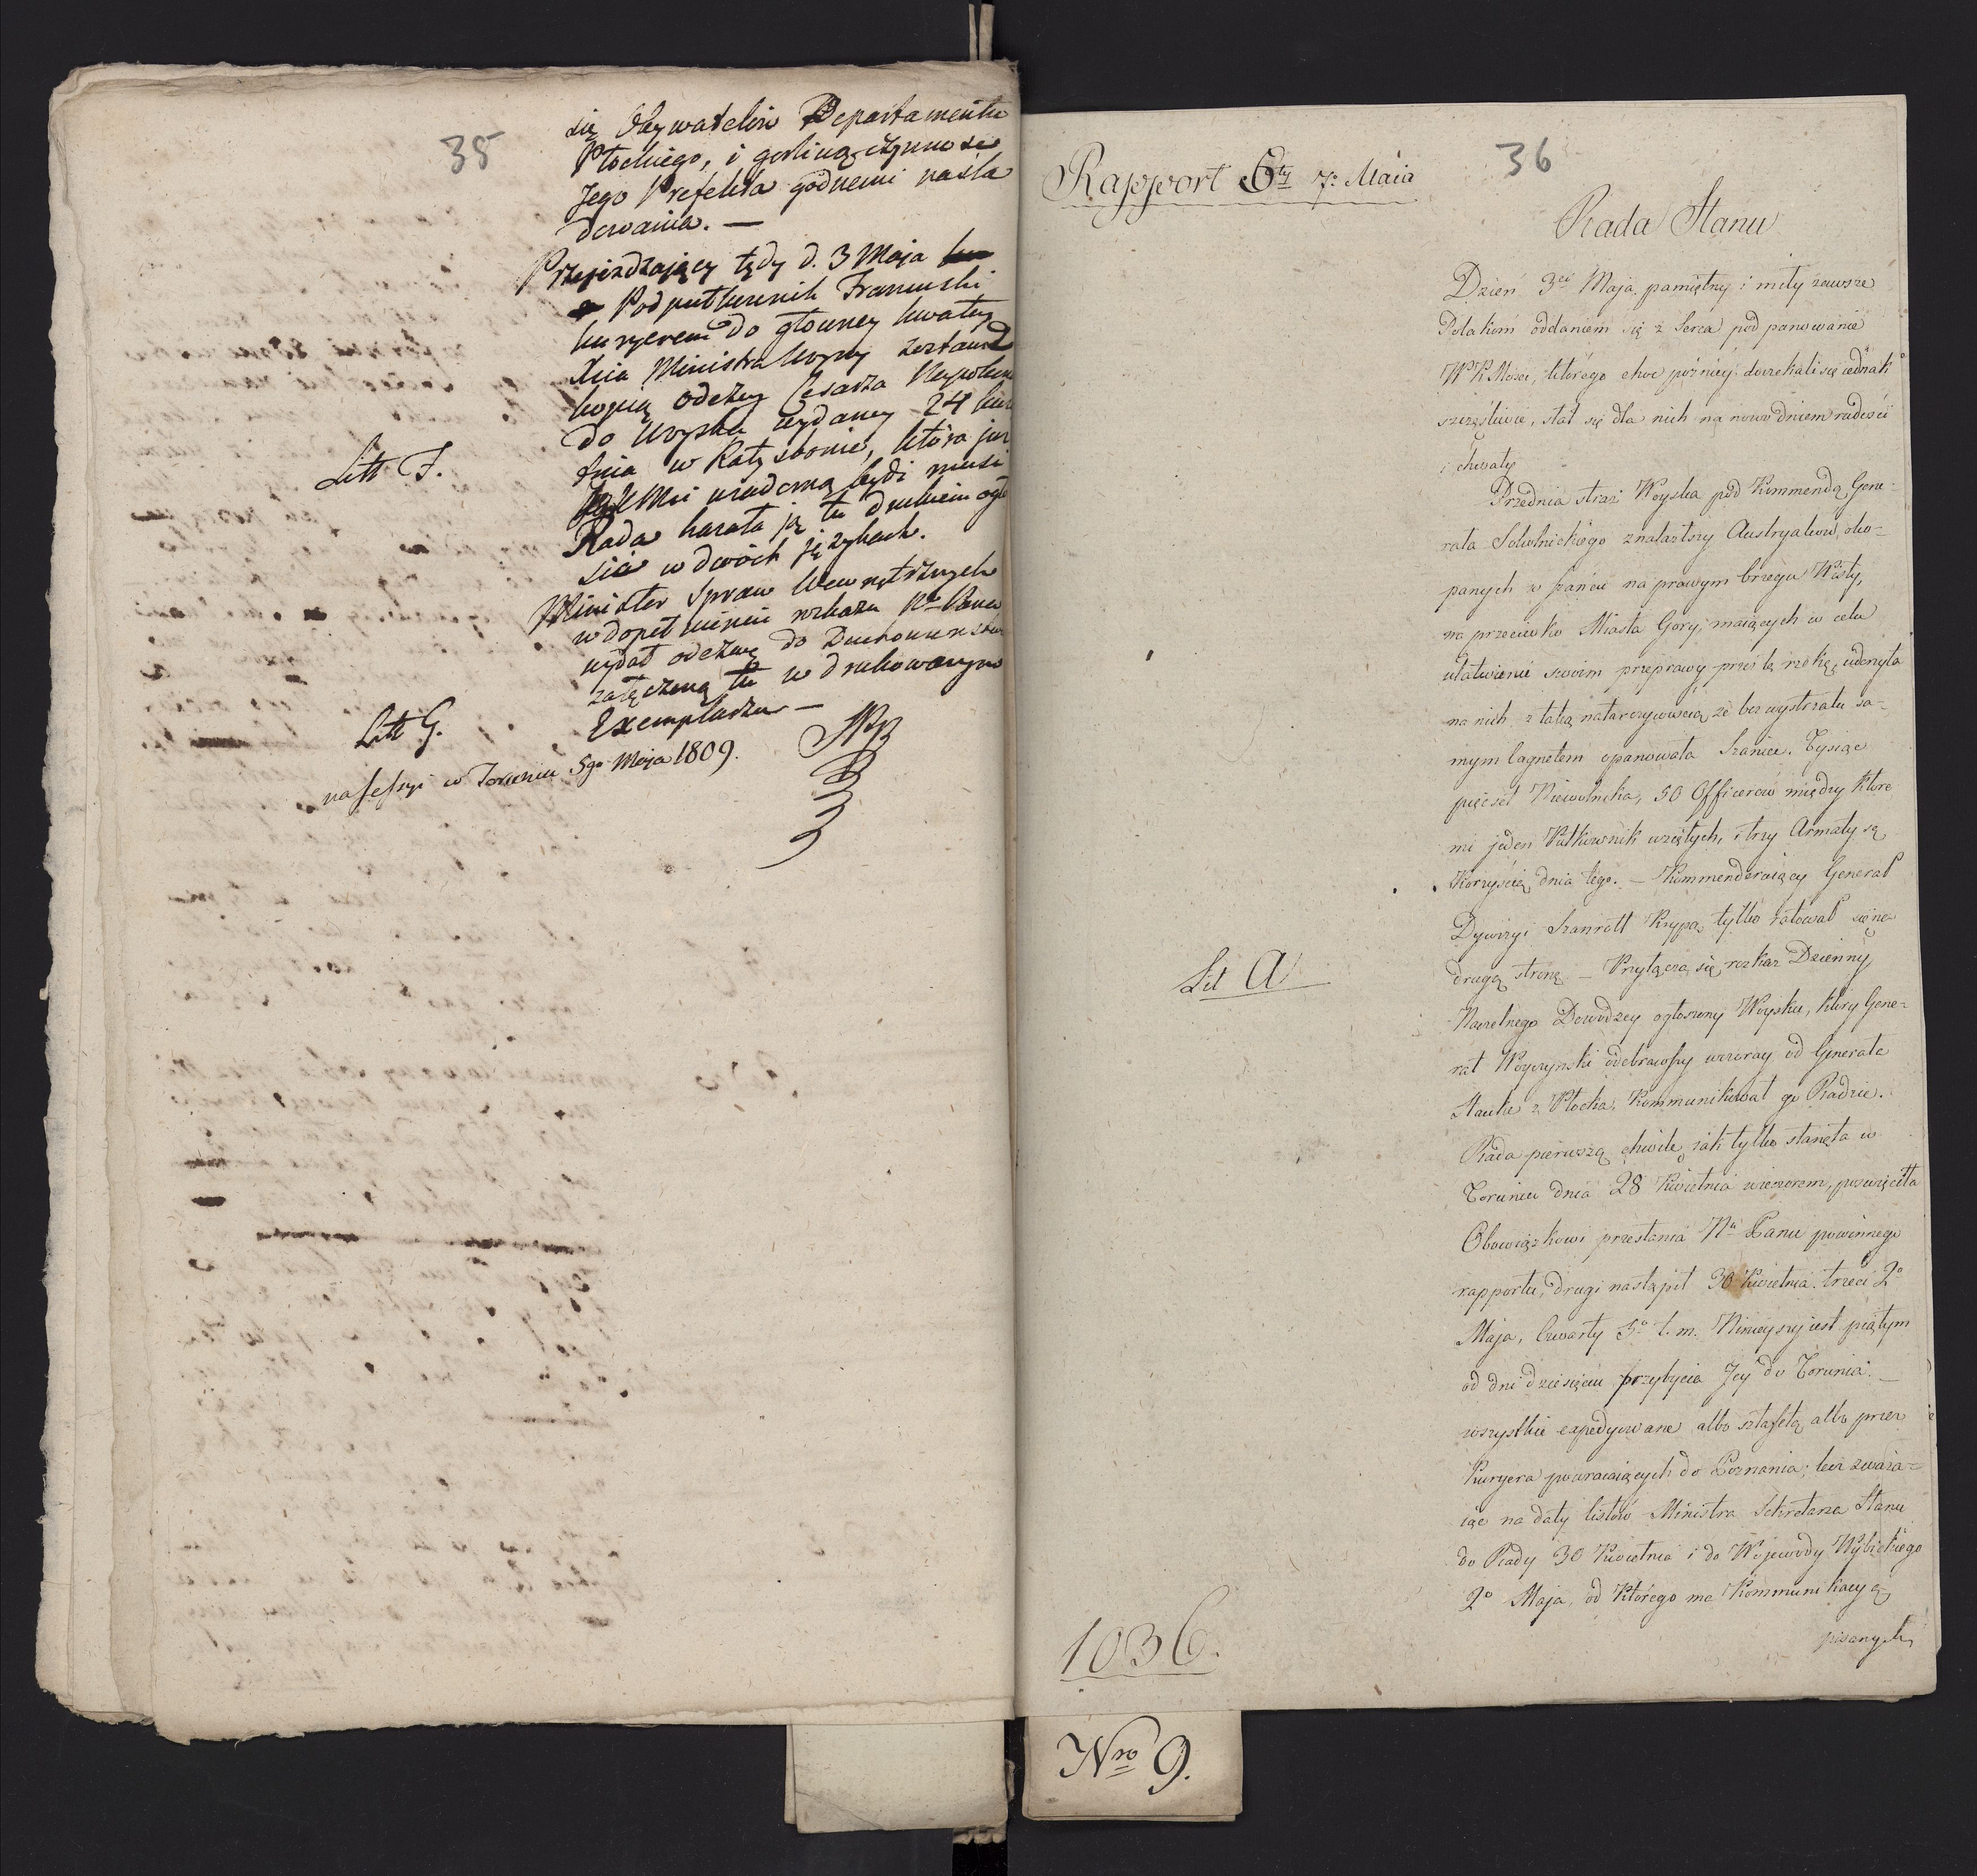 35
się Obywatelów Departamentu
Płockiego, i gorliwą czynność
Jego Prefekta godnemi naśla
dowania. —
Przejeżdżający tędy d. 3 Maja
Podpułkownik Francuski
kuryerem do głowney kwatery
Xcia Ministra Woyny zostawił
kopią odezwy Cesarza Napoleona
do Woyska wydaney 24 kwie
tnia w Ratysbonie, która już
WKMci wiadomą bydź musi
Litt F.
Rada kazała ją tu drukiem ogło
sić w dwóch językach.
Minister Spraw Wewnętrznych
w dopełnieniu rozkazu Nro Pana
wydał odezwę do Duchowieństwa
załączoną tu w drukowanym
Exemplarzu —
Litt G.
na sessyi w Toruniu 5go Maja 1809.
36
Rapport 6ty 7o Maia
Rada Stanu
Dzien 3ci Maja pamiętny i miły zawsze
Polakom oddaniem się z Serca pod panowanie
WKMości, którego choc później doczekali się iednak
szczęśliwie, stał się dla nich na nowo dniem radości
i chwały
Przednia straż Woyska pod Kommendą Gene-
rała Sokolnickiego znalazłszy Austryakow, oko-
panych w szańcu na prawym brzegu Wisły,
na przeciwko Miasta Gory, maiących w celu
ułatwienie swoim przeprawy przez tę rzekę, uderzyła
na nich z taką natarczywością, że bez wystrzału sa-
mym bagnetem opanowała Szańce. Tysiąc
pięćset Niewolnika, 50 Officerów między które
mi jeden Pułkownik wziętych, i trzy Armaty są
Korzyścią dnia tego. — Kommenderuiący Generał
Dywizyi Szauroth Krypą tylko ratował się na
drugą stronę — Przyłącza się rozkaz Dzienny
Lit A
Naczelnego Dowódzcy ogłoszony Woysku, ktory Gene-
rał Woyczynski odebrawszy wczoray od Generała
Hauke z Płocka, Kommunikował go Radzie.
Rada pierwszą chwile, iak tylko stanęła w
Toruniu dnia 28 Kwietnia wieczorem, poswięciła
Obowiązkowi przesłania Nu Panu powinnego
rapportu, drugi nastąpił 30 Kwietnia. trzeci 2o
Maja, Czwarty 5o t. m. Ninieyszy iest piątym
od dni dziesięciu przybycia Jey do Torunia. —
wszystkie expedyowane albo sztafetą albo przez
Kuryera powracaiących do Poznania; lecz zważa-
iąc na daty listów Ministra Sekretarza Stanu
do Rady 30 Kwietnia i do Wojewody Wybickiego
2o Maja, od którego ma Kommunikacyą
pisanych
1036.
Nro 9.